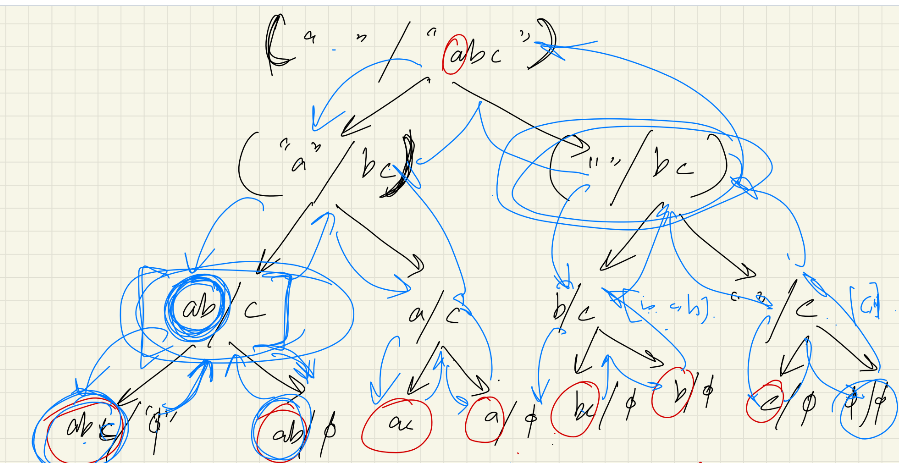 ( " " / " abc " )
( "a" / bc )
( " " / bc )
ab / c
a / c
b / c
" " / c
abc / " ϕ "
ab / ϕ
ac
a / ϕ
bc / ϕ
b / ϕ
c / ϕ
ϕ / ϕ